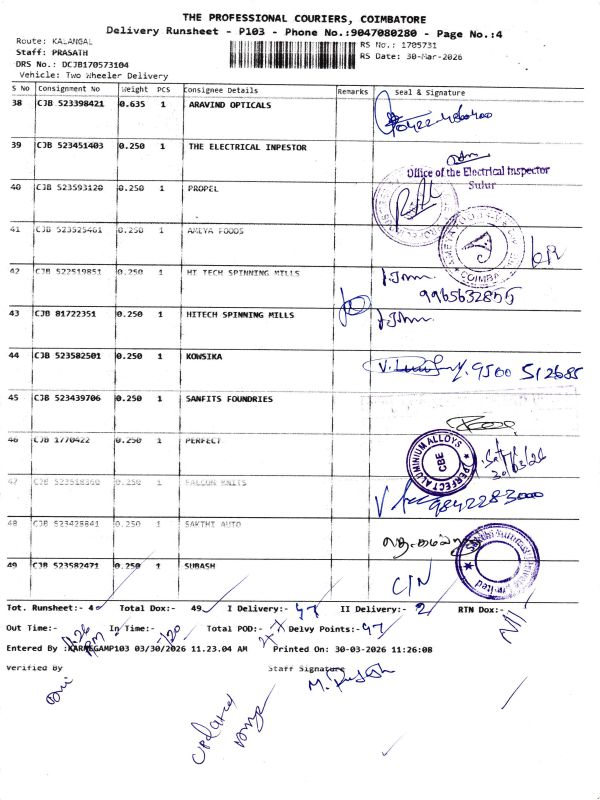 THE PROFESSIONAL COURIERS, COIMBATORE
Delivery Runsheet - P103 - Phone No.:9047080280 - Page No.:4
Route: KALANGAL
RS No.: 1705731
Staff: PRASATH
RS Date: 30-Mar-2026
DRS No.: DCJB170573104
Vehicle: Two Wheeler Delivery
S No Consignment No Weight PCS Consignee Details Remarks Seal & Signature
38 CJB 523398421 0.635 1 ARAVIND OPTICALS
39 CJB 523451403 0.250 1 THE ELECTRICAL INPESTOR
Office of the Electrical Inspector
Sulur
40 CJB 523593120 0.250 1 PROPEL
41 CJB 523525461 0.250 1 AMEYA FOODS
COIMBA
42 CJB 522519851 0.250 1 HI TECH SPINNING MILLS
9965632855
43 CJB 81722351 0.250 1 HITECH SPINNING MILLS
44 CJB 523582501 0.250 1 KOWSIKA
9500 512685
45 CJB 523439706 0.250 1 SANFITS FOUNDRIES
46 CJB 1770422 0.250 1 PERFECT
PERFECT ALUMINIUM ALLOYS
CBE
30/03/26
47 CJB 523518360 0.250 1 FALCON KNITS
984228-3000
48 CJB 523428841 0.250 1 SAKTHI AUTO
49 CJB 523582471 0.250 1 SUBASH
C/N
Tot. Runsheet:- 4 Total Dox:- 49 I Delivery:- 47 II Delivery:- 2 RTN Dox:- Nil
Out Time:- In Time:- Total POD:- 47 Delvy Points:- 47
Entered By :KARMEGAMP103 03/30/2026 11.23.04 AM Printed On: 30-03-2026 11:26:08
Verified By Staff Signature